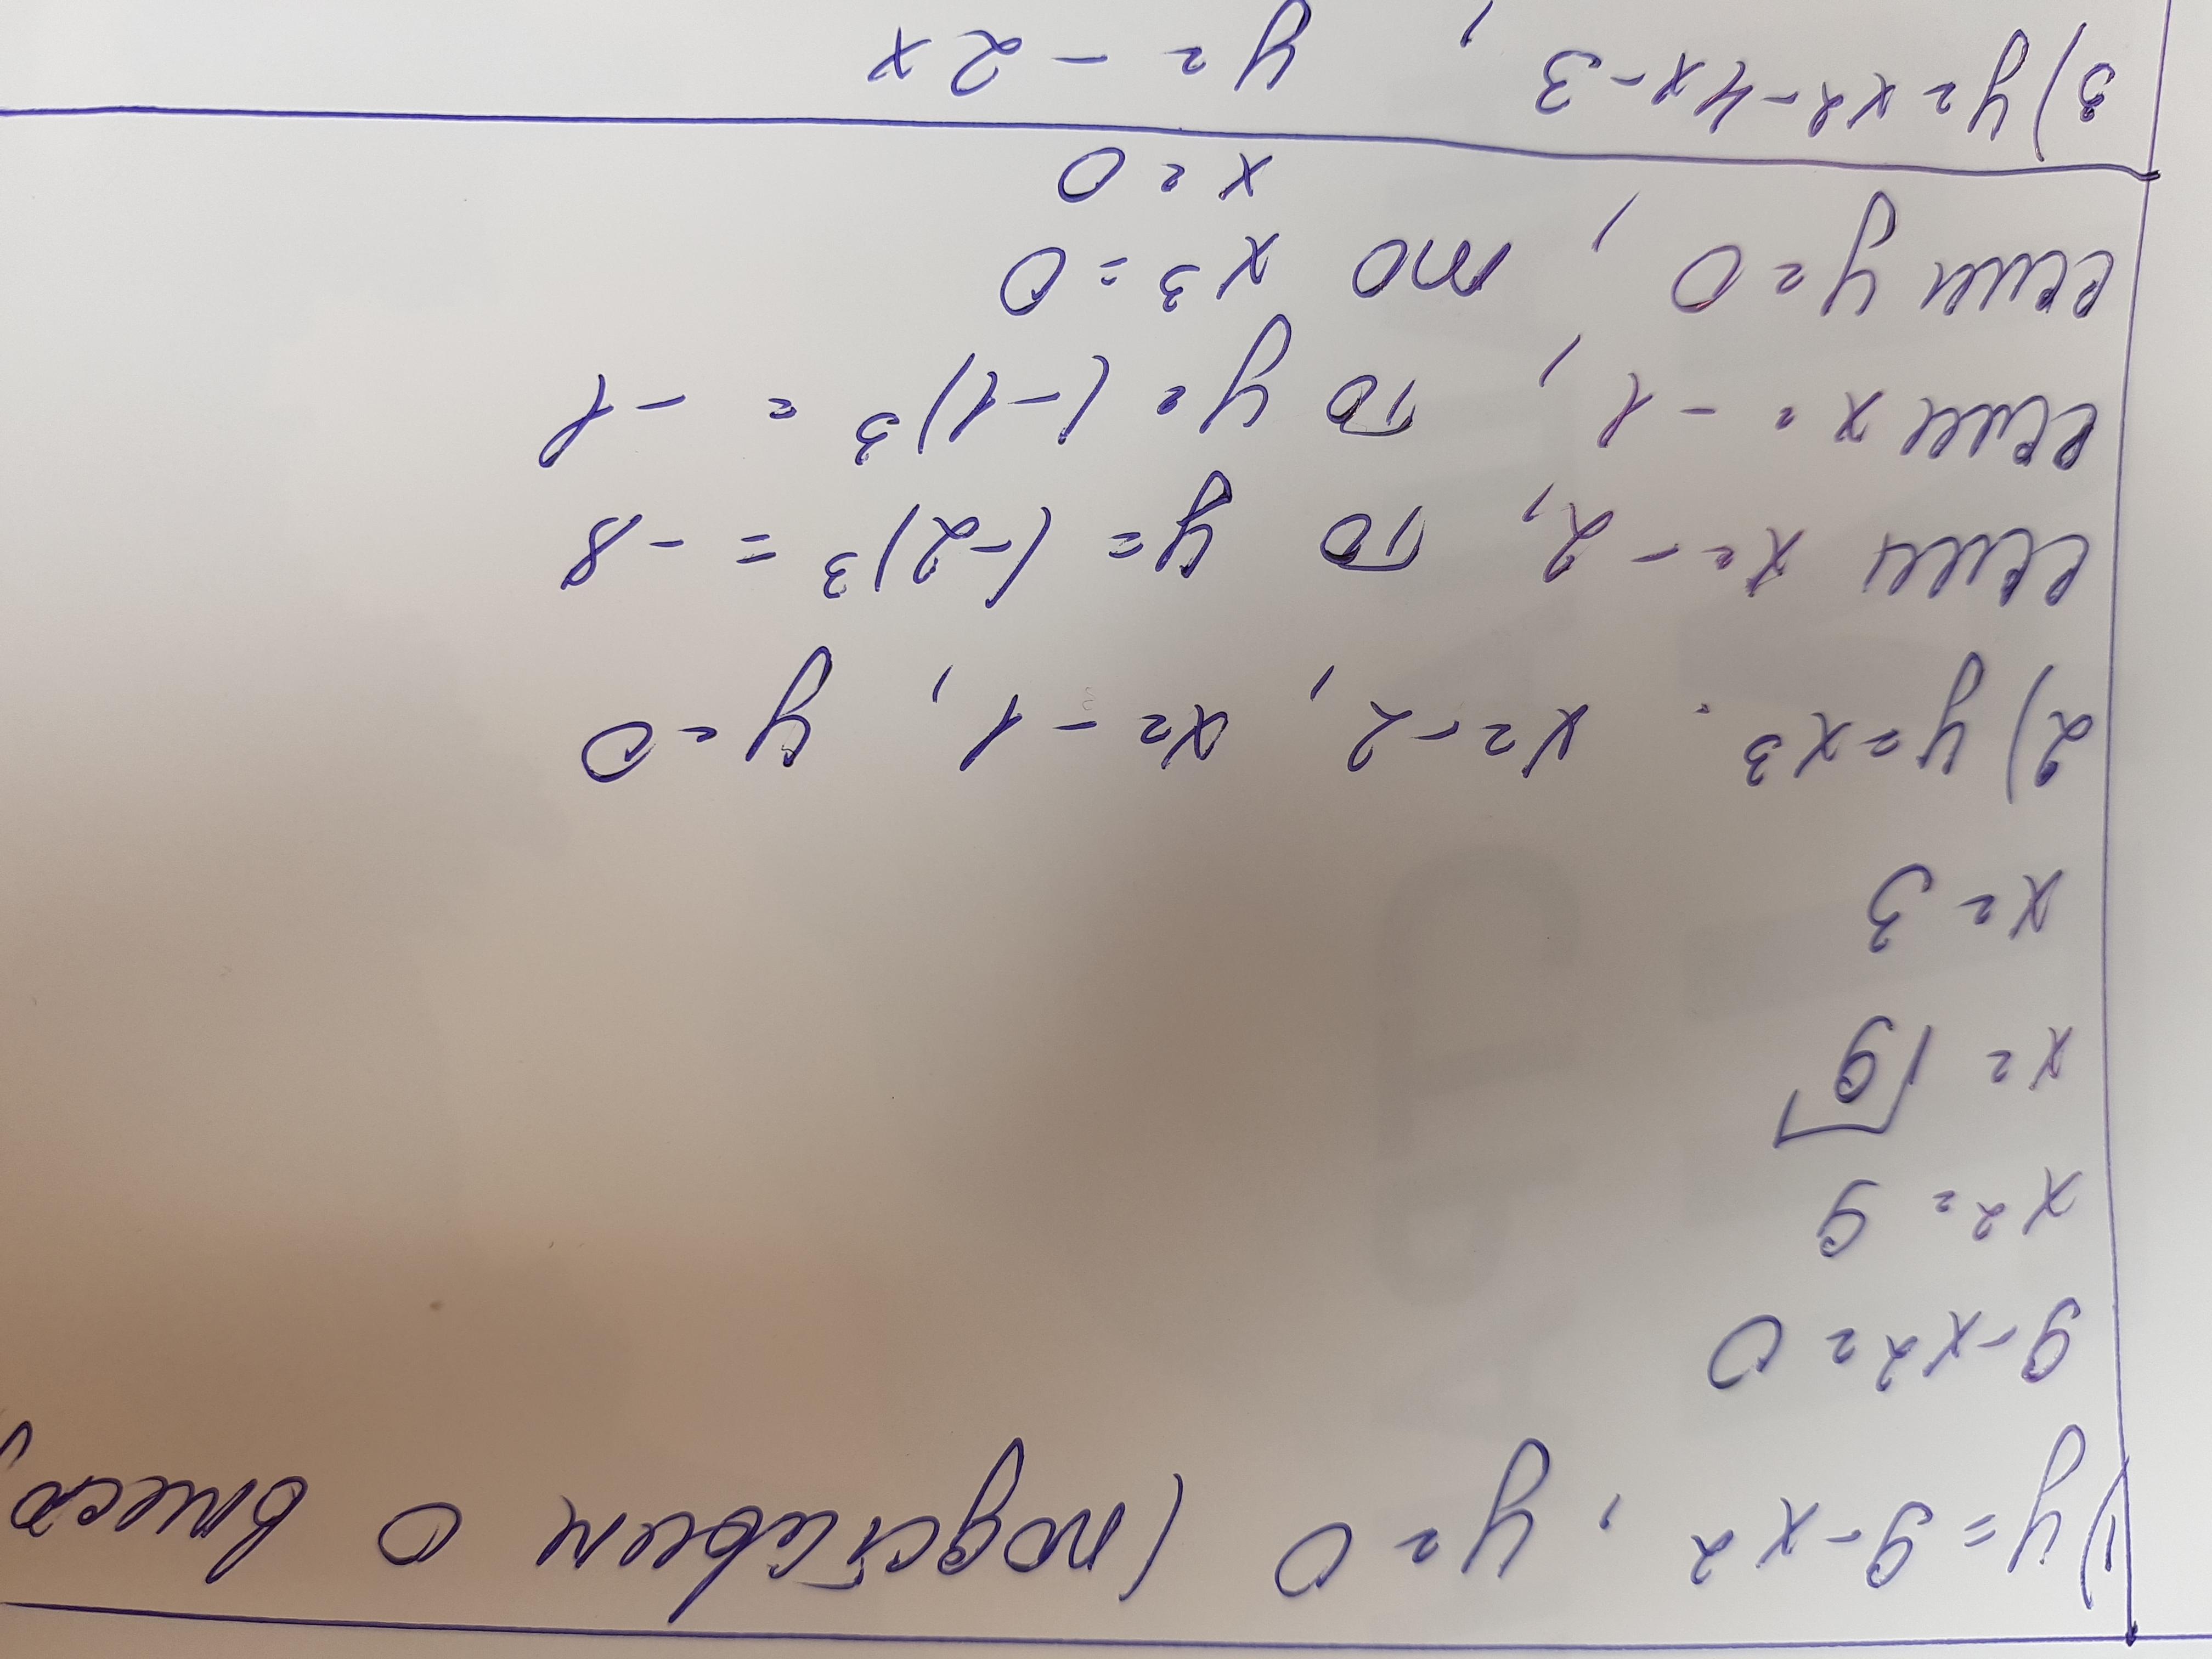 1) y = 9 - x2, y = 0 (подставим 0 вместо
9 - x2 = 0
x2 = 9
x = √9
x = 3
2) y = x3. x = -2, x = -1, y = 0
если x = -2, то y = (-2)3 = -8
если x = -1, то y = (-1)3 = -1
если y = 0, то x3 = 0
x = 0
3) y = x2 - 4x - 3, y = -2x